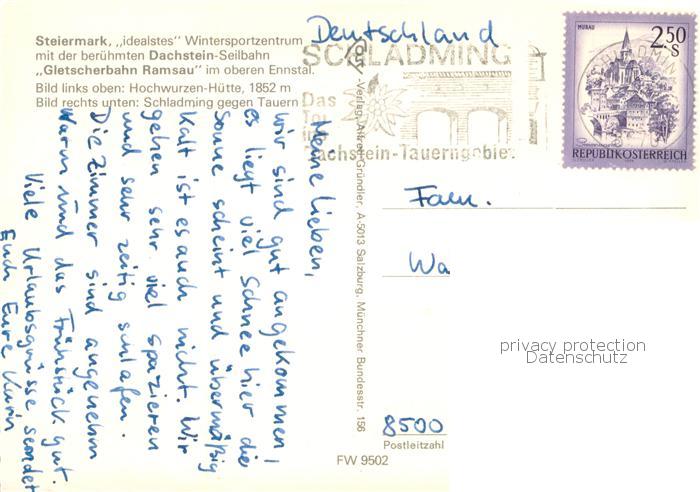 Steiermark, „idealstes" Wintersportzentrum
mit der berühmten Dachstein-Seilbahn
„Gletscherbahn Ramsau" im oberen Ennstal.
Bild links oben: Hochwurzen-Hütte, 1852 m
Bild rechts unten: Schladming gegen Tauern
Meine Lieben,
wir sind gut angekommen,
es liegt viel Schnee hier die
Sonne scheint und übermäßig
kalt ist es auch nicht. Wir
gehen sehr viel spazieren
und sehr zeitig schlafen.
Die Zimmer sind angenehm
warm und das Frühstück gut.
Viele Urlaubsgrüsse sendet
Euch Eure Karin
Verlag Alfred Gründler, A-5013 Salzburg, Münchner Bundesstr. 156
FW 9502
Deutschland
SCHLADMING
Das
Tor
im
Dachstein-Tauerngebiet
MURAU
2.50
S
REPUBLIK ÖSTERREICH
Fam.
Wa
privacy protection
Datenschutz
8500
Postleitzahl